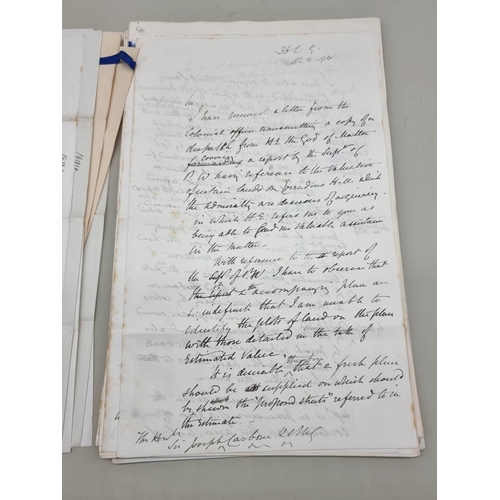 Sir
I have received a letter from the
Colonial office transmitting a copy of a
despatch from H.E. the Gov of Malta
covering
forwarding a report by the Supt of
P.W. having reference to the valuation
of certain lands on Corradino Hill which
the Admiralty are desirous of acquiring
in which H.E. refers me to you as
being able to lend me valuable assistance
in the matter.
With reference to the report of
the Supt of P.W. I have to observe that
the accompanying plan are
so indefinite that I am unable to
identify the plots of land on the plan
with those detailed in the table of
Estimated Value.
It is desirable that a fresh plan
should be supplied on which should
be shewn the "proposed streets" referred to in
the Estimate. —
The Honble
Sir Joseph Carbone GCMG